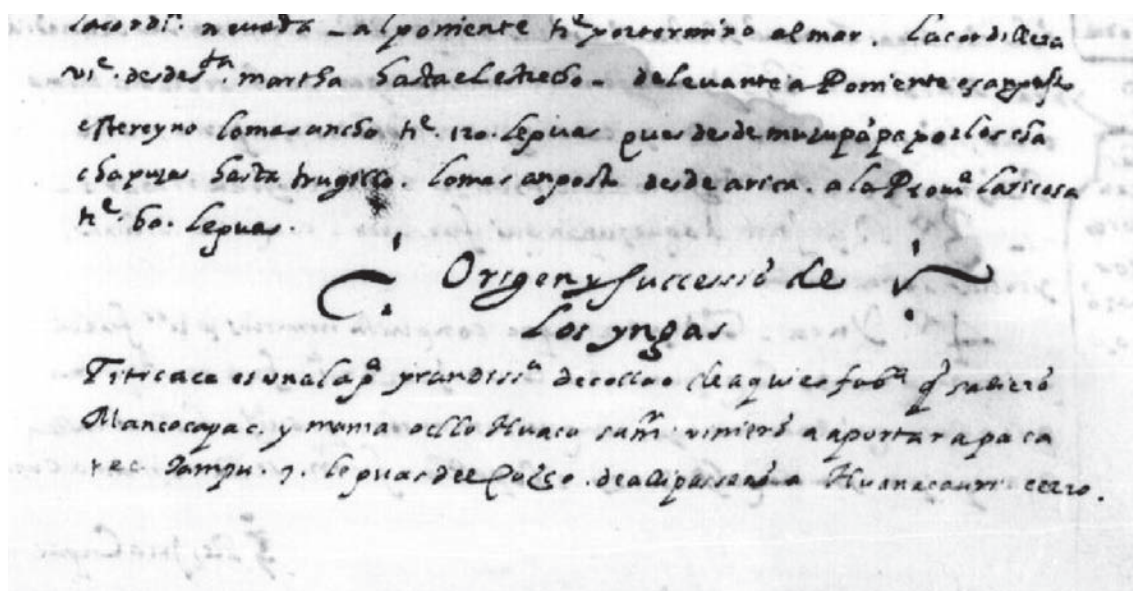 la cordi.ª nevada _ al poniente tᵉ por termino al mar. la cordillera
vᵉ. desde sᵗᵃ. martha hasta el estrecho _ de levante a Poniente es angosto
este reyno lo mas ancho tᵉ. 120. leguas ques desde muyupāpa por los cha
chapuyas hasta trugillo. lo mas angosto desde arica. a la Prouᵃ laricaxa
tᵉ. 60. leguas.
Origen y successiō de
los yngas
Titicaca es una lagᵃ grandissᵃ de collao de aqui es fabᵃ q̄ salierō
Mancocapac. y mama ocllo Huaco vinierō a aportar a paca
rec Tampu 7. leguas del Cozco. de alli passarō a Huanacauri cerro.